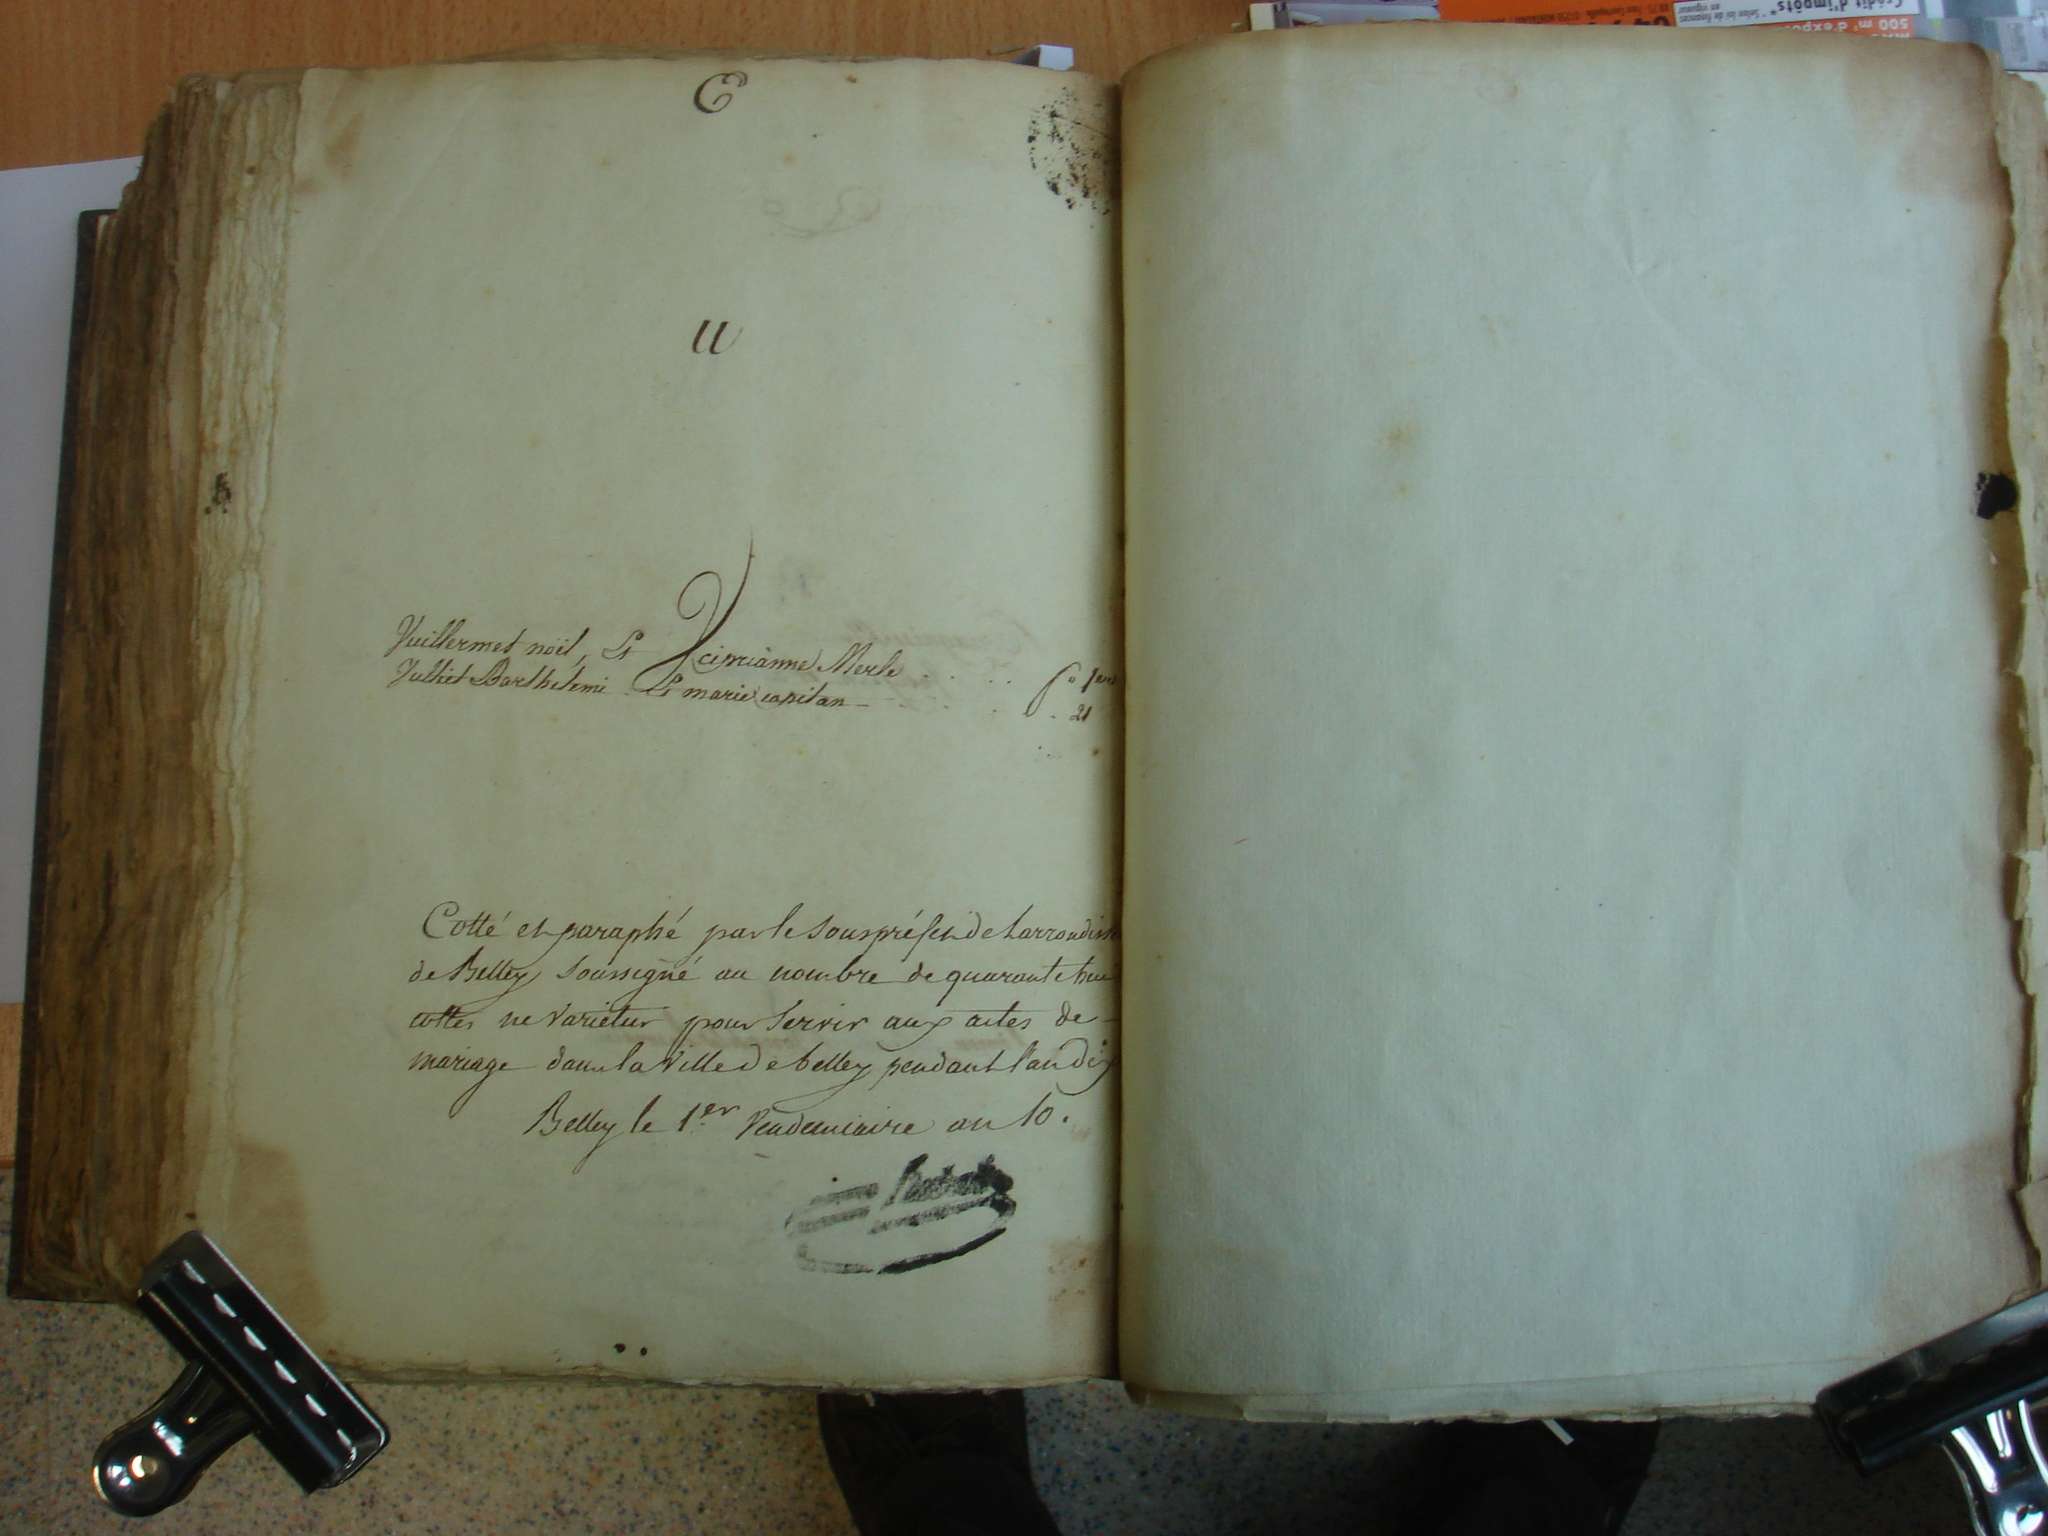 U
V
Vuillermet noël, Et ciprianne Merle . . . . . fo
Vulliet Barthelemi Et marie capitan - . . . . 21
Cotté et paraphé par le Sous préfet de Larrondiss
de Belley soussigné au nombre de quarante
cottes ne varietur pour servir aux actes de -
mariage dans la Ville de belley pendant l'an dix
Belley le 1er Vendemiaire an 10.
Crédit d'impôts
500 m² d'expo